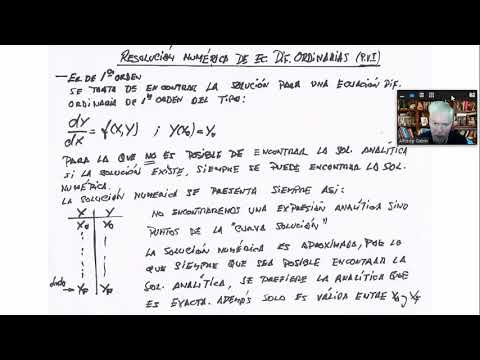 RESOLUCIÓN NUMÉRICA DE EC DIF. ORDINARIAS (P.V.I)
— EC DE 1ER ORDEN
SE TRATA DE ENCONTRAR LA SOLUCIÓN PARA UNA ECUACIÓN DIF.
ORDINARIA DE 1ER ORDEN DEL TIPO:
dY/dX = f(X,Y) ; Y(X0) = Y0
PARA LA QUE NO ES POSIBLE DE ENCONTRAR LA SOL. ANALÍTICA
SI LA SOLUCIÓN EXISTE, SIEMPRE SE PUEDE ENCONTRAR LA SOL.
NUMÉRICA.
LA SOLUCIÓN NUMERICA SE PRESENTA SIEMPRE ASI:
X Y
X0 Y0
XF YF
NO ENCONTRAREMOS UNA EXPRESIÓN ANALÍTICA SINO
PUNTOS DE LA "CURVA SOLUCIÓN"
LA SOLUCIÓN NUMÉRICA ES APROXIMADA, POR LO
QUE SIEMPRE QUE SEA POSIBLE ENCONTRAR LA
SOL. ANALÍTICA, SE PREFIERE LA ANALÍTICA QUE
ES EXACTA. ADEMÁS SOLO ES VÁLIDA ENTRE X0 y XF